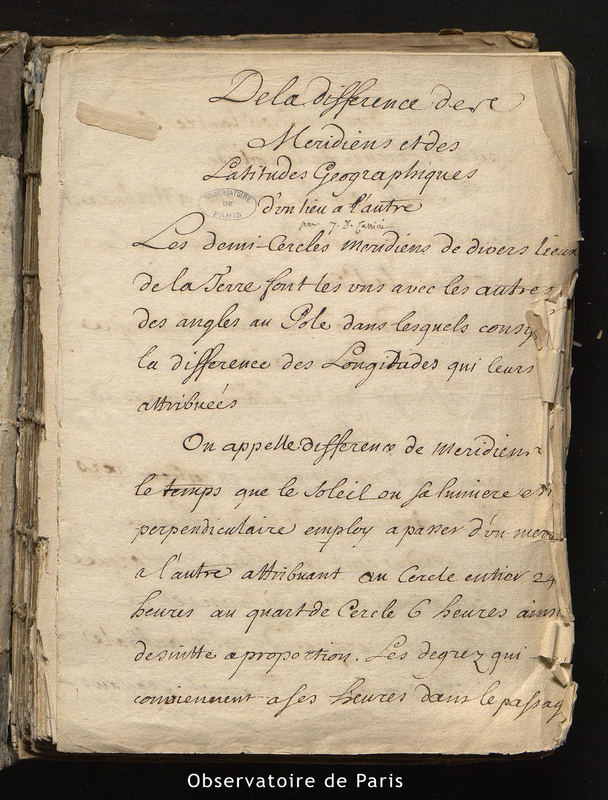 De la difference des
Meridiens et des
Latitudes Geographiques
OBSERVATOIRE
DE
PARIS
d'vn lieu a l'autre
par J. D. Cassini
Les demi-Cercles meridiens de divers lieux
de la Terre font les vns avec les autres
des angles au Pole dans lesquels
la difference des Longitudes qui leurs
attribueés
On appelle difference de meridiens
le temps que le soleil ou sa lumiere
perpendiculaire employ a passer d'vn
a l'autre attribuant au Cercle entier 24
heures au quart de Cercle 6 heures ainsi
de suitte a proportion. Les degrez qui
conviennent a ses heures dans le passag
Observatoire de Paris